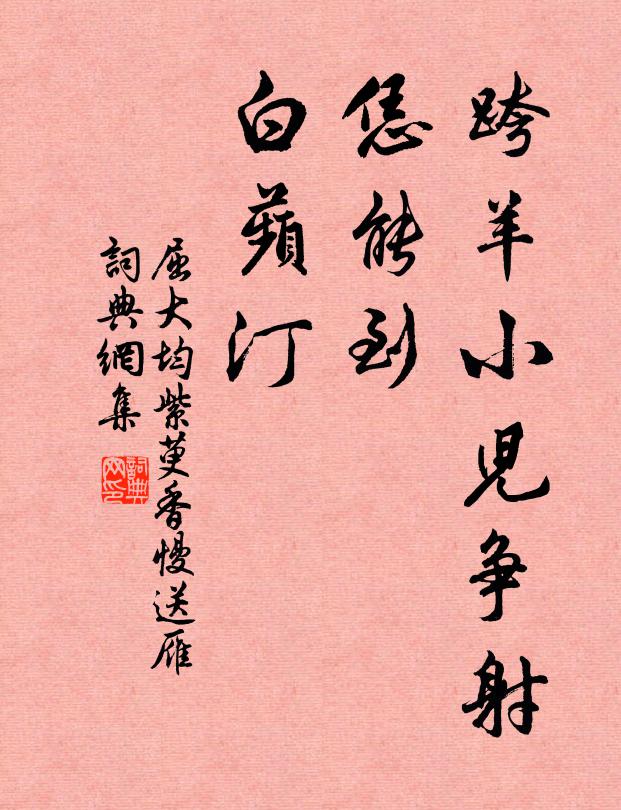 跨羊小児争射
恁能到
白蘋汀
屈大均紫萸香慢送雁
詞典網集
詞典网印